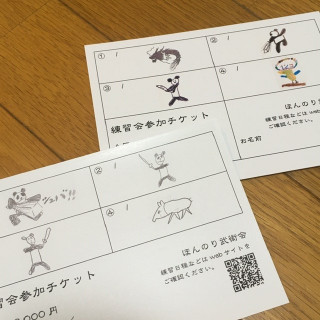 ① /
② /
③ /
④ /
練習会参加チケット
ほんのり武術会
練習日程などは web サイトを
ご確認ください。
お名前
シュバ!!
②
④
習会参加チケット
ほんのり武術会
練習日程などは web サイトを
ご確認ください。
000 円